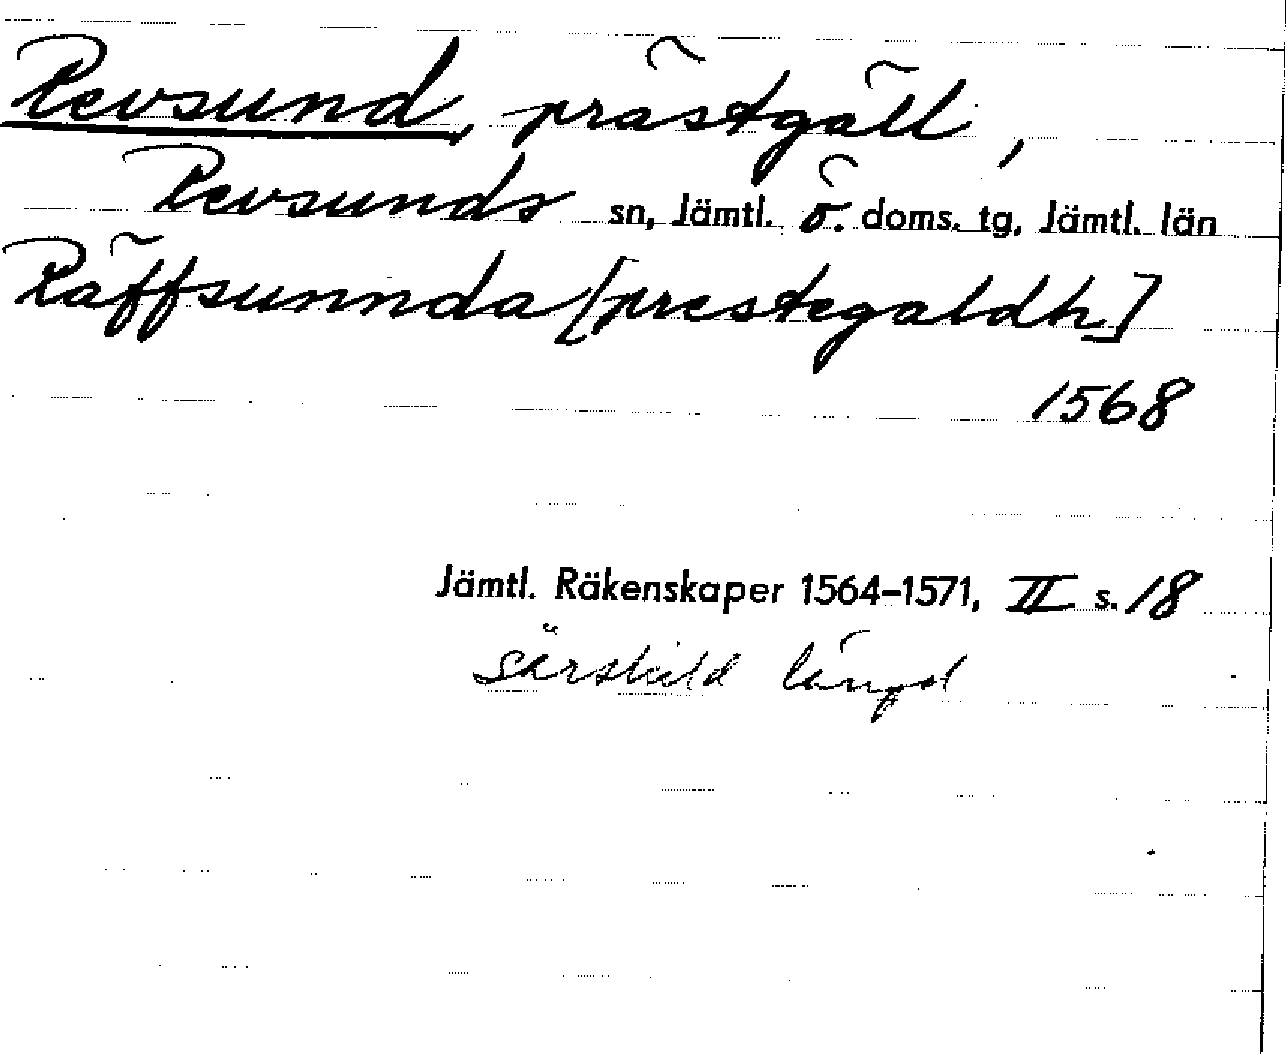 Revsund, prästgäll,
Revsunds sn, Jämtl. ö. doms. tg, Jämtl. län
Räffsunnda [prestegaldh]
1568
Jämtl. Räkenskaper 1564-1571, II s. 18
Särskild längd